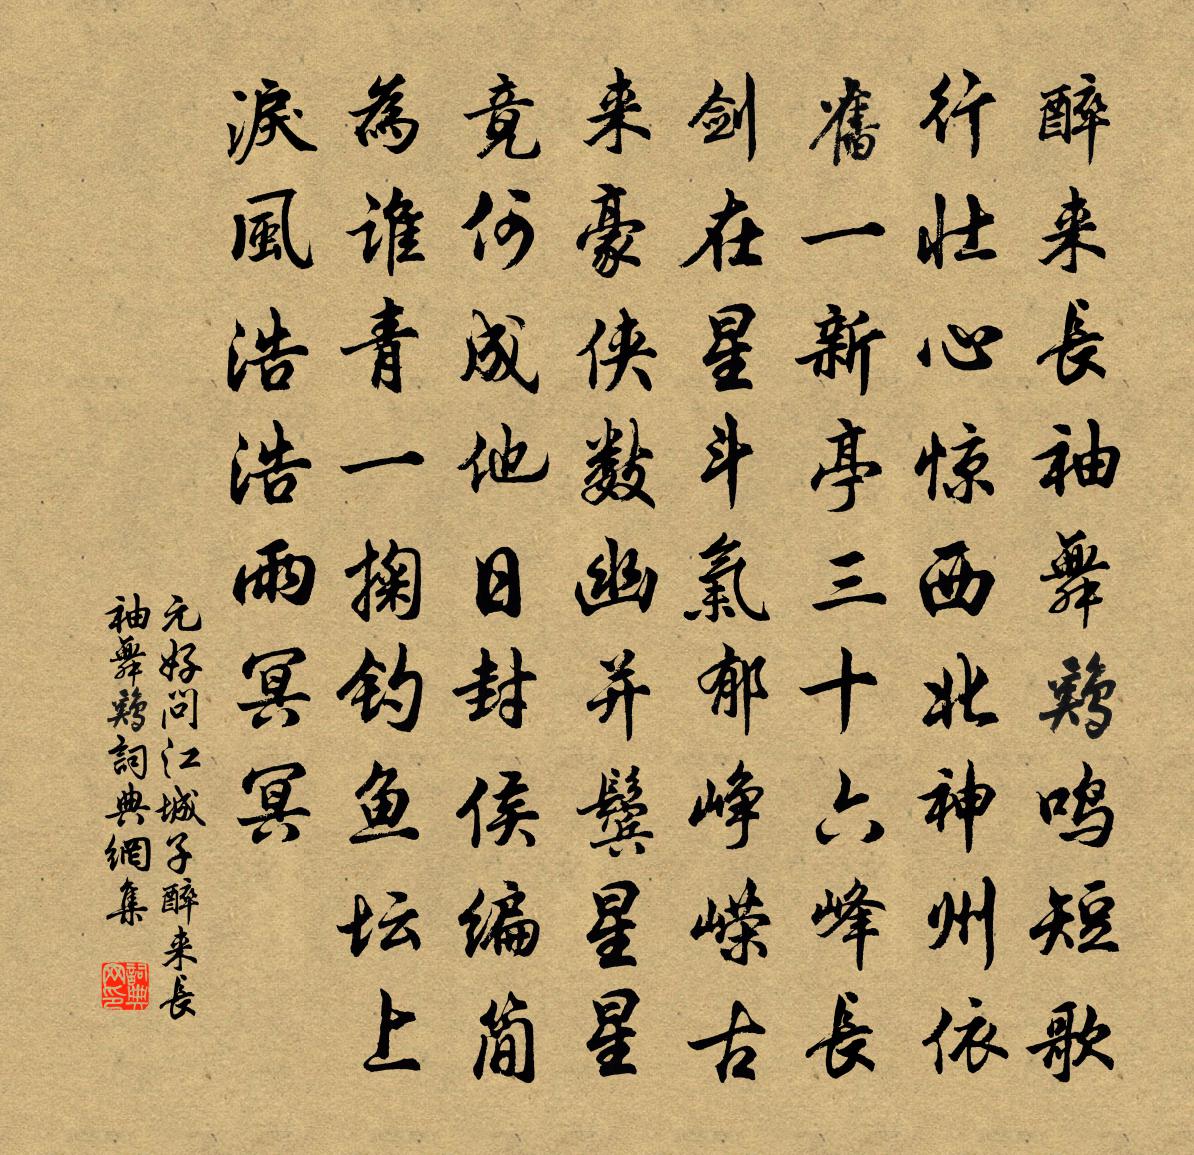 醉来長袖舞鷄鳴短歌
行壮心惊西北神州依
舊一新亭三十六峰長
剑在星斗氣郁峥嵘古
来豪侠数幽并鬓星星
竟何成他日封侯编简
為谁青一掬钓鱼坛上
淚風浩浩雨冥冥
元好问江城子醉来長
袖舞鷄詞典網集
詞典网印